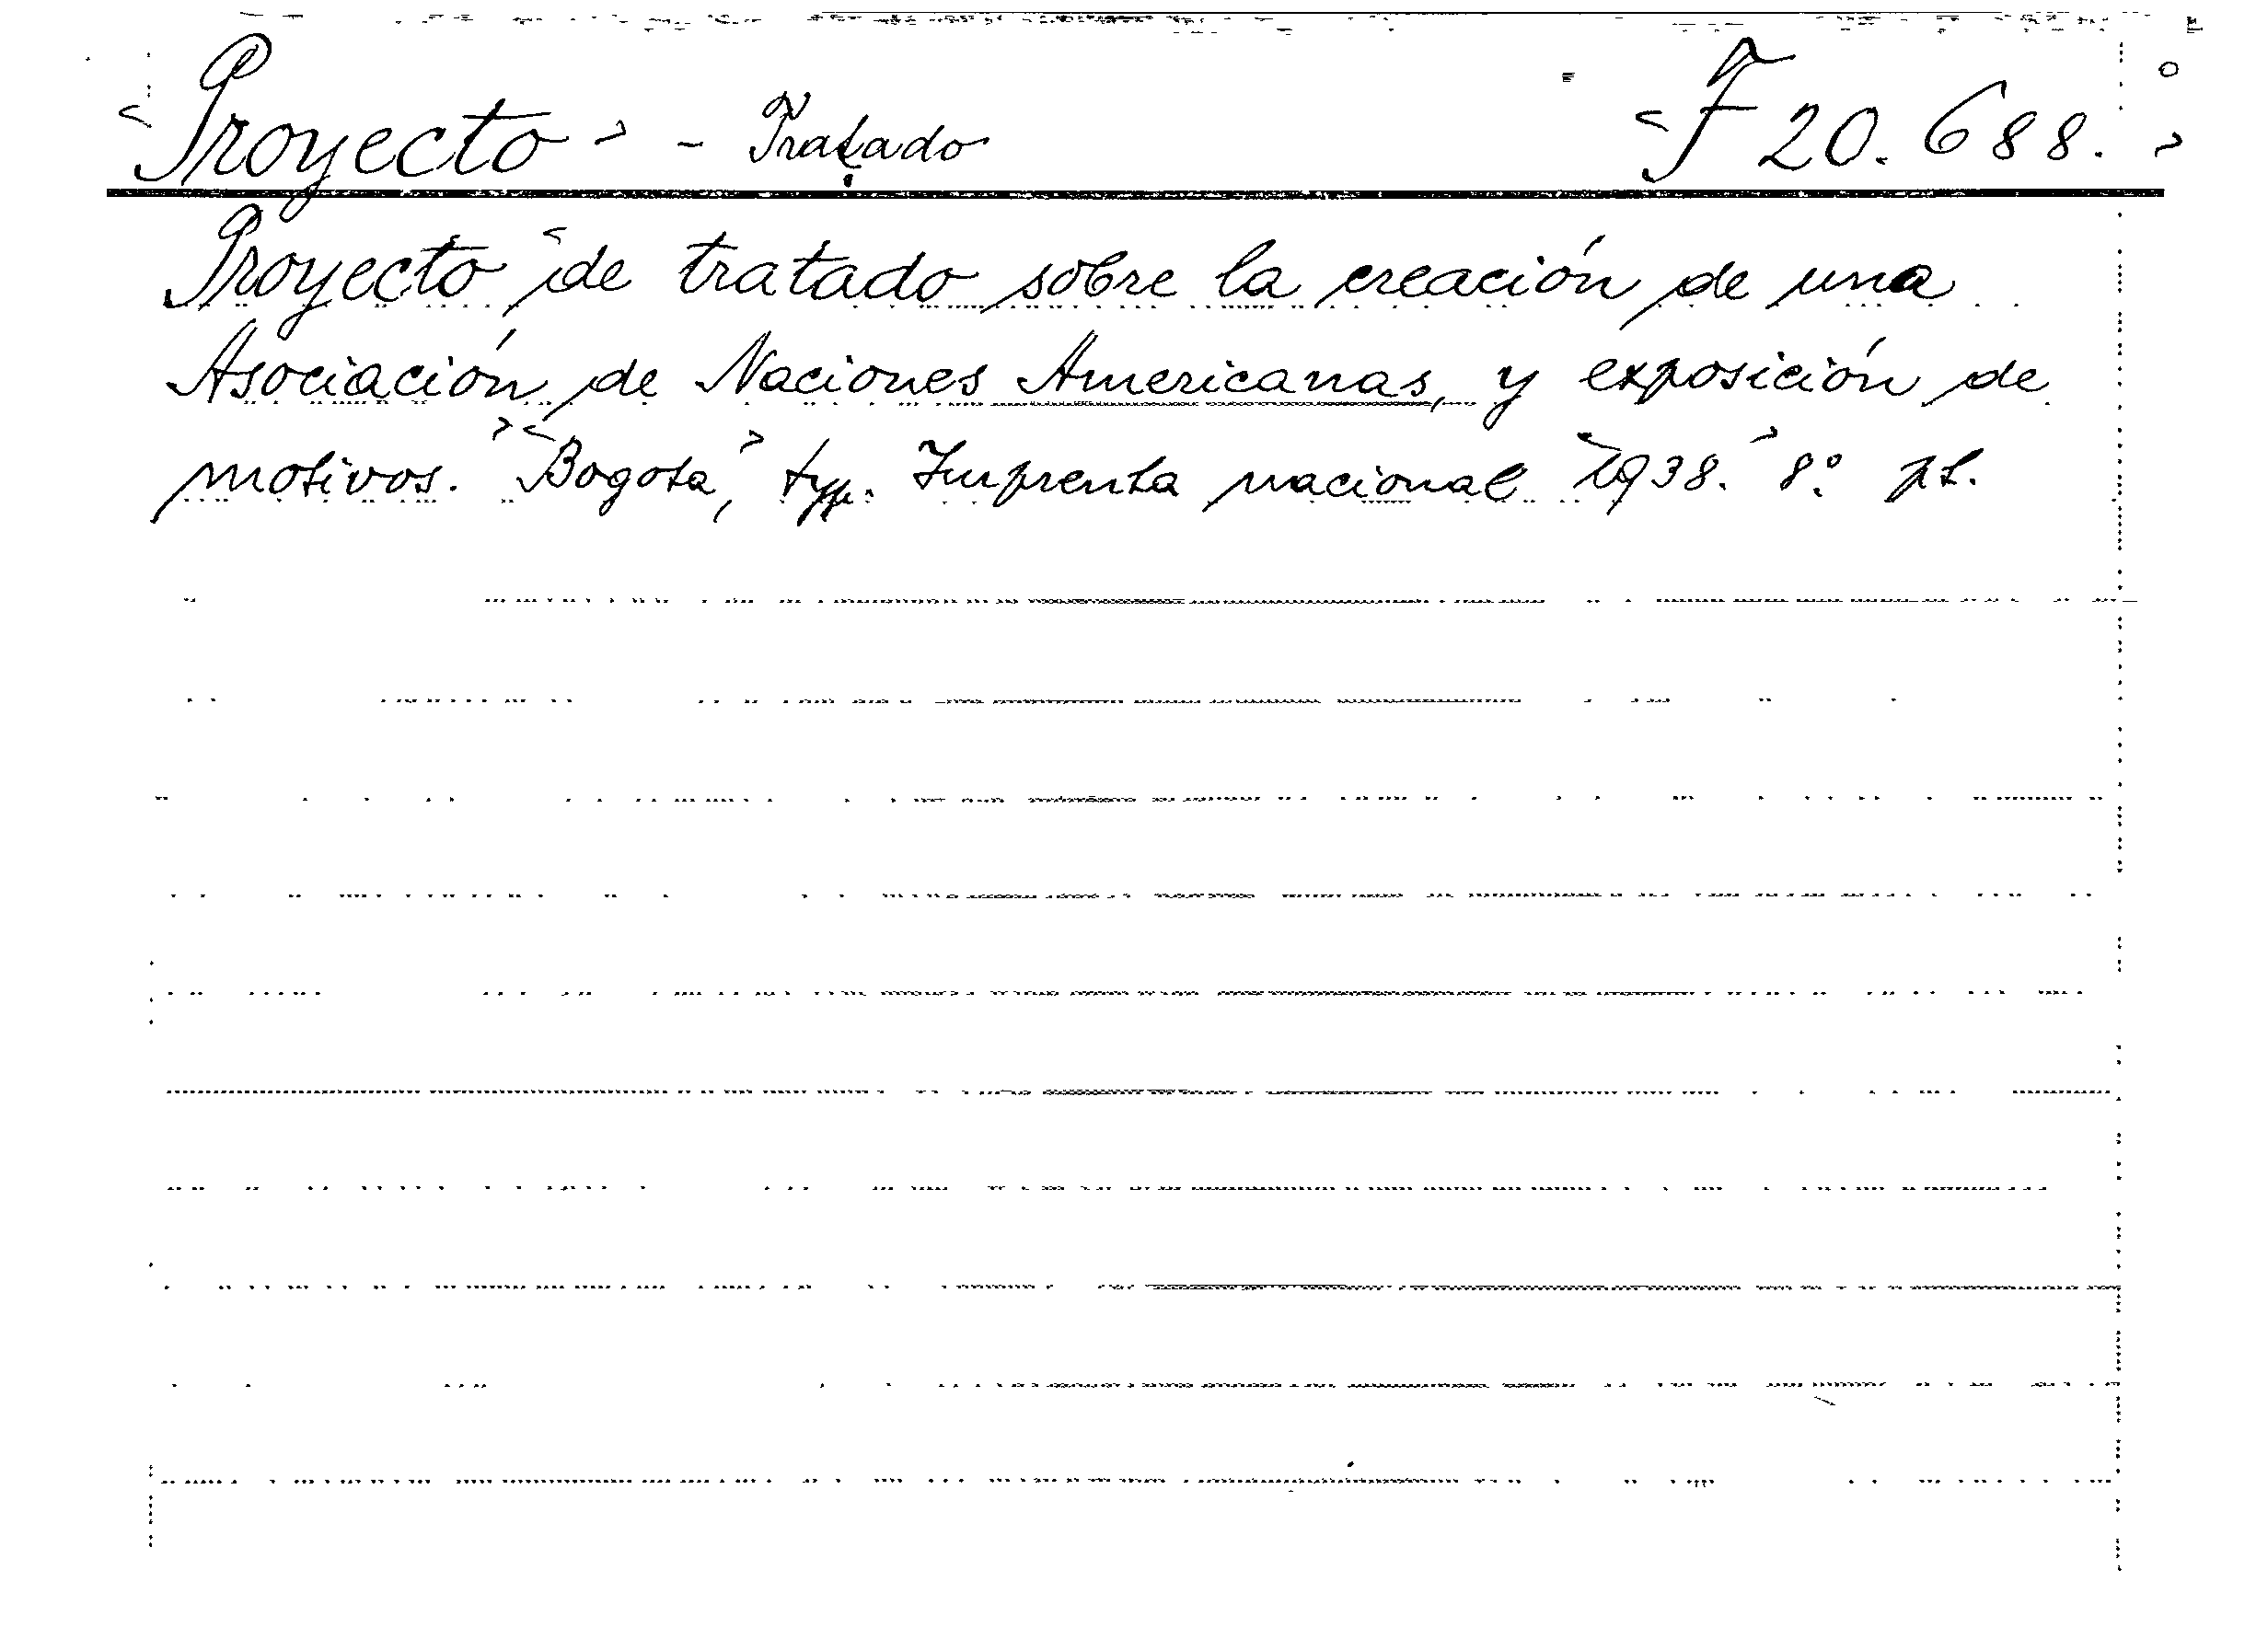 <Proyecto> - Tratado <F 20.688.>
Proyecto <de tratado sobre la creación de una
Asociación de Naciones Americanas, y exposición de
motivos.> <Bogota>, typ. Imprenta nacional <1938.> 8º. pt.